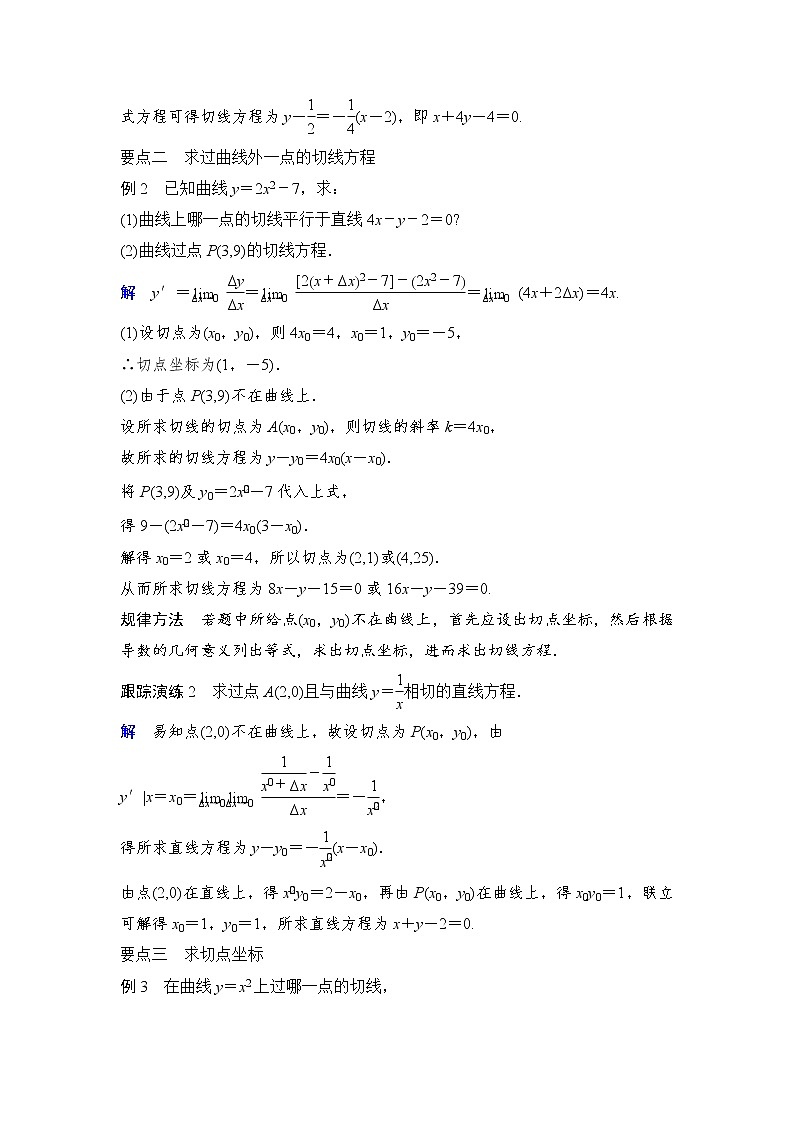 式方程可得切线方程为 y－1/2＝－1/4(x－2)，即 x＋4y－4＝0.
要点二　求过曲线外一点的切线方程
例 2　已知曲线 y＝2x²－7，求：
(1)曲线上哪一点的切线平行于直线 4x－y－2＝0?
(2)曲线过点 P(3,9)的切线方程．
解　y′＝lim Δx→0 Δy/Δx＝lim Δx→0 {[2(x＋Δx)²－7]－(2x²－7)}/Δx＝lim Δx→0 (4x＋2Δx)＝4x.
(1)设切点为(x₀，y₀)，则 4x₀＝4，x₀＝1，y₀＝－5，
∴切点坐标为(1，－5)．
(2)由于点 P(3,9)不在曲线上．
设所求切线的切点为 A(x₀，y₀)，则切线的斜率 k＝4x₀，
故所求的切线方程为 y－y₀＝4x₀(x－x₀)．
将 P(3,9)及 y₀＝2x－7 代入上式，
得 9－(2x－7)＝4x₀(3－x₀)．
解得 x₀＝2 或 x₀＝4，所以切点为(2,1)或(4,25)．
从而所求切线方程为 8x－y－15＝0 或 16x－y－39＝0.
规律方法　若题中所给点(x₀，y₀)不在曲线上，首先应设出切点坐标，然后根据
导数的几何意义列出等式，求出切点坐标，进而求出切线方程．
跟踪演练 2　求过点 A(2,0)且与曲线 y＝1/x相切的直线方程．
解　易知点(2,0)不在曲线上，故设切点为 P(x₀，y₀)，由
y′|x＝x₀＝lim lim (1/(x＋Δx)－1/x)/Δx＝－1/x，
得所求直线方程为 y－y₀＝－1/x(x－x₀)．
由点(2,0)在直线上，得 xy₀＝2－x₀，再由 P(x₀，y₀)在曲线上，得 x₀y₀＝1，联立
可解得 x₀＝1，y₀＝1，所求直线方程为 x＋y－2＝0.
要点三　求切点坐标
例 3　在曲线 y＝x²上过哪一点的切线，